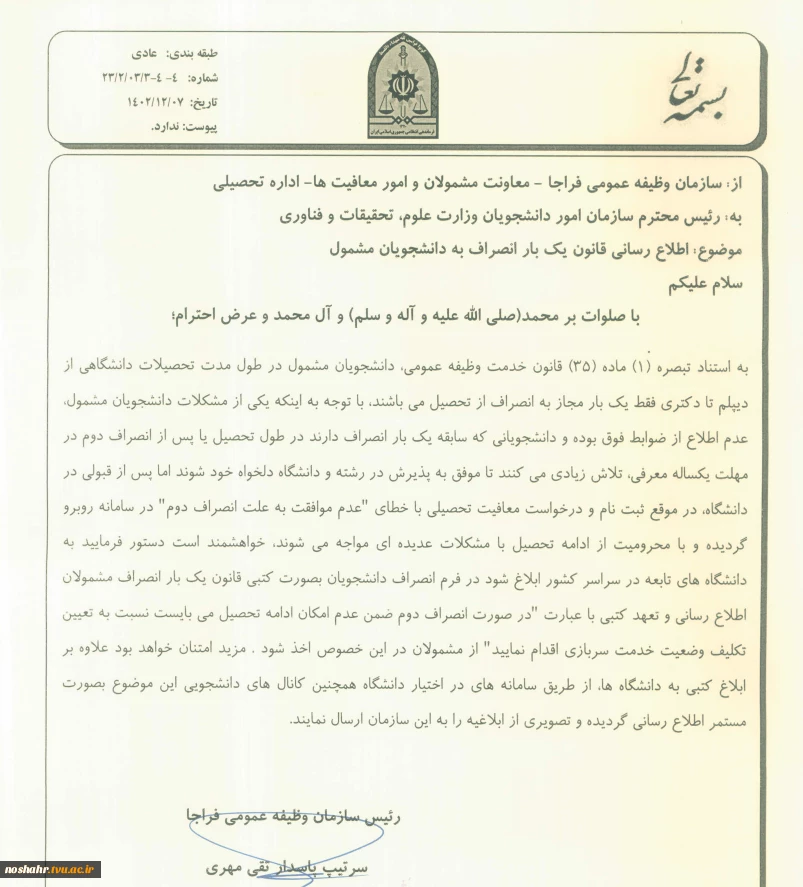 بسمه تعالی
طبقه بندی: عادی
شماره: ٤- ٤-٢٣/٢/٠٣/٣
تاریخ: ١٤٠٢/١٢/٠٧
پیوست: ندارد.
از: سازمان وظیفه عمومی فراجا - معاونت مشمولان و امور معافیت ها- اداره تحصیلی
به: رئیس محترم سازمان امور دانشجویان وزارت علوم، تحقیقات و فناوری
موضوع: اطلاع رسانی قانون یک بار انصراف به دانشجویان مشمول
سلام علیکم
با صلوات بر محمد(صلی الله علیه و آله و سلم) و آل محمد و عرض احترام؛
به استناد تبصره (١) ماده (٣٥) قانون خدمت وظیفه عمومی، دانشجویان مشمول در طول مدت تحصیلات دانشگاهی از
دیپلم تا دکتری فقط یک بار مجاز به انصراف از تحصیل می باشند، با توجه به اینکه یکی از مشکلات دانشجویان مشمول،
عدم اطلاع از ضوابط فوق بوده و دانشجویانی که سابقه یک بار انصراف دارند در طول تحصیل یا پس از انصراف دوم در
مهلت یکساله معرفی، تلاش زیادی می کنند تا موفق به پذیرش در رشته و دانشگاه دلخواه خود شوند اما پس از قبولی در
دانشگاه، در موقع ثبت نام و درخواست معافیت تحصیلی با خطای "عدم موافقت به علت انصراف دوم" در سامانه روبرو
گردیده و با محرومیت از ادامه تحصیل با مشکلات عدیده ای مواجه می شوند، خواهشمند است دستور فرمایید به
دانشگاه های تابعه در سراسر کشور ابلاغ شود در فرم انصراف دانشجویان بصورت کتبی قانون یک بار انصراف مشمولان
اطلاع رسانی و تعهد کتبی با عبارت "در صورت انصراف دوم ضمن عدم امکان ادامه تحصیل می بایست نسبت به تعیین
تکلیف وضعیت خدمت سربازی اقدام نمایید" از مشمولان در این خصوص اخذ شود . مزید امتنان خواهد بود علاوه بر
ابلاغ کتبی به دانشگاه ها، از طریق سامانه های در اختیار دانشگاه همچنین کانال های دانشجویی این موضوع بصورت
مستمر اطلاع رسانی گردیده و تصویری از ابلاغیه را به این سازمان ارسال نمایند.
رئیس سازمان وظیفه عمومی فراجا
سرتیپ پاسدار تقی مهری
noshahr.tvu.ac.ir